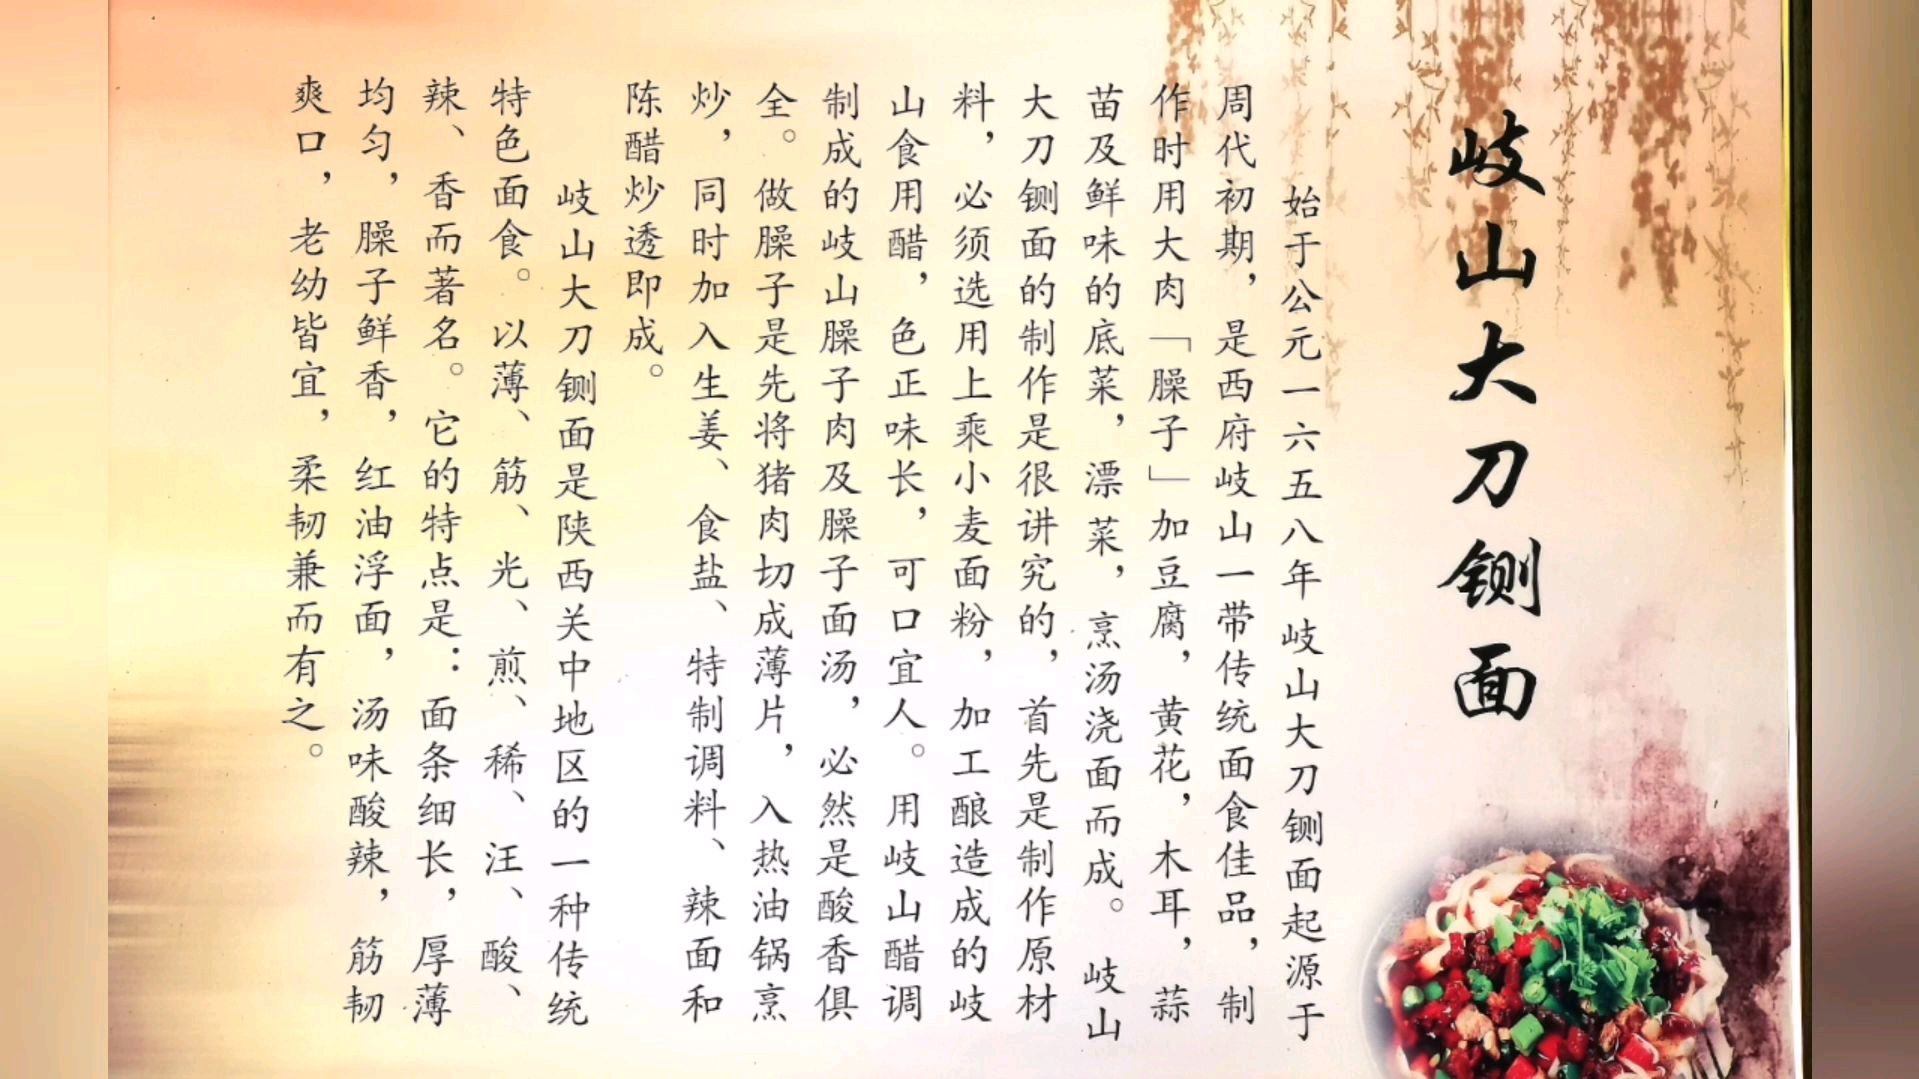 岐山大刀铡面
始于公元一六五八年岐山大刀铡面起源于
周代初期，是西府岐山一带传统面食佳品，制
作时用大肉「臊子」加豆腐，黄花，木耳，蒜
苗及鲜味的底菜，漂菜，烹汤浇面而成。岐山
大刀铡面的制作是很讲究的，首先是制作原材
料，必须选用上乘小麦面粉，加工酿造成的岐
山食用醋，色正味长，可口宜人。用岐山醋调
制成的岐山臊子肉及臊子面汤，必然是酸香俱
全。做臊子是先将猪肉切成薄片，入热油锅烹
炒，同时加入生姜、食盐、特制调料、辣面和
陈醋炒透即成。
岐山大刀铡面是陕西关中地区的一种传统
特色面食。以薄、筋、光、煎、稀、汪、酸、
辣、香而著名。它的特点是：面条细长，厚薄
均匀，臊子鲜香，红油浮面，汤味酸辣，筋韧
爽口，老幼皆宜，柔韧兼而有之。